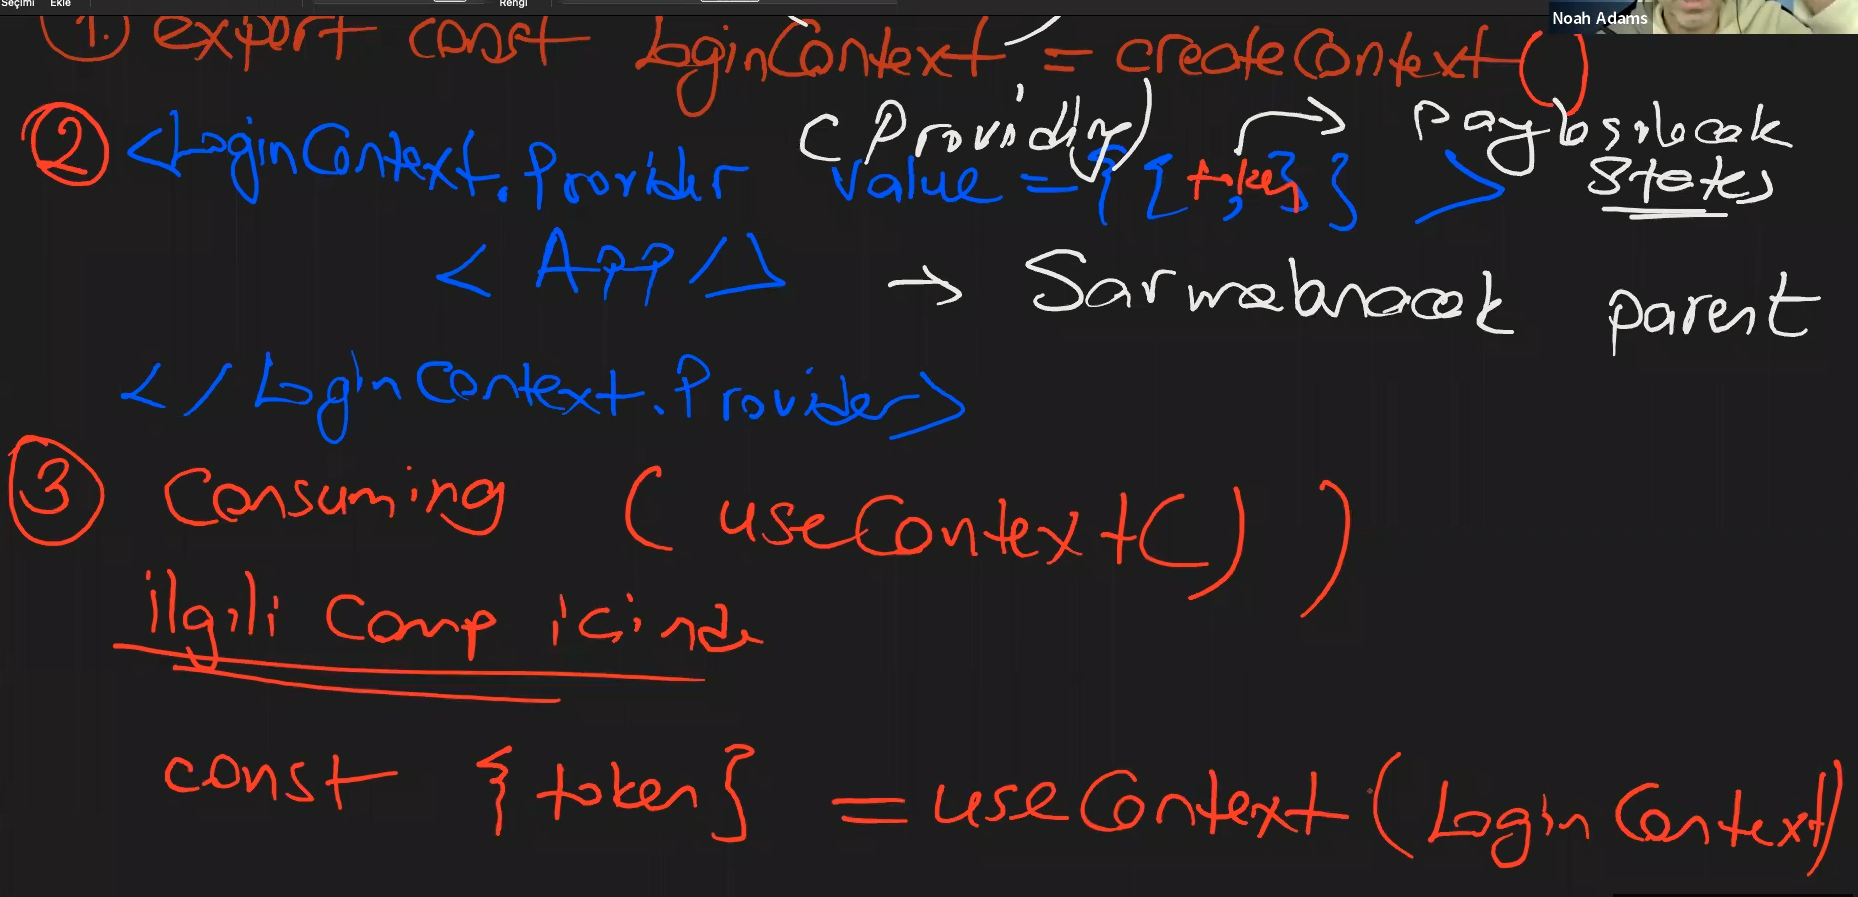 Seçimi Ekle Rengi
Noah Adams
1. export const LoginContext = createContext()
(Providing) → paylasılacak
② <LoginContext.Provider value = {{token,}} > states
<App/> → Sarmalanacak parent
</LoginContext.Provider>
③ Consuming (useContext())
ilgili Comp içinde
const {token} = useContext(LoginContext)